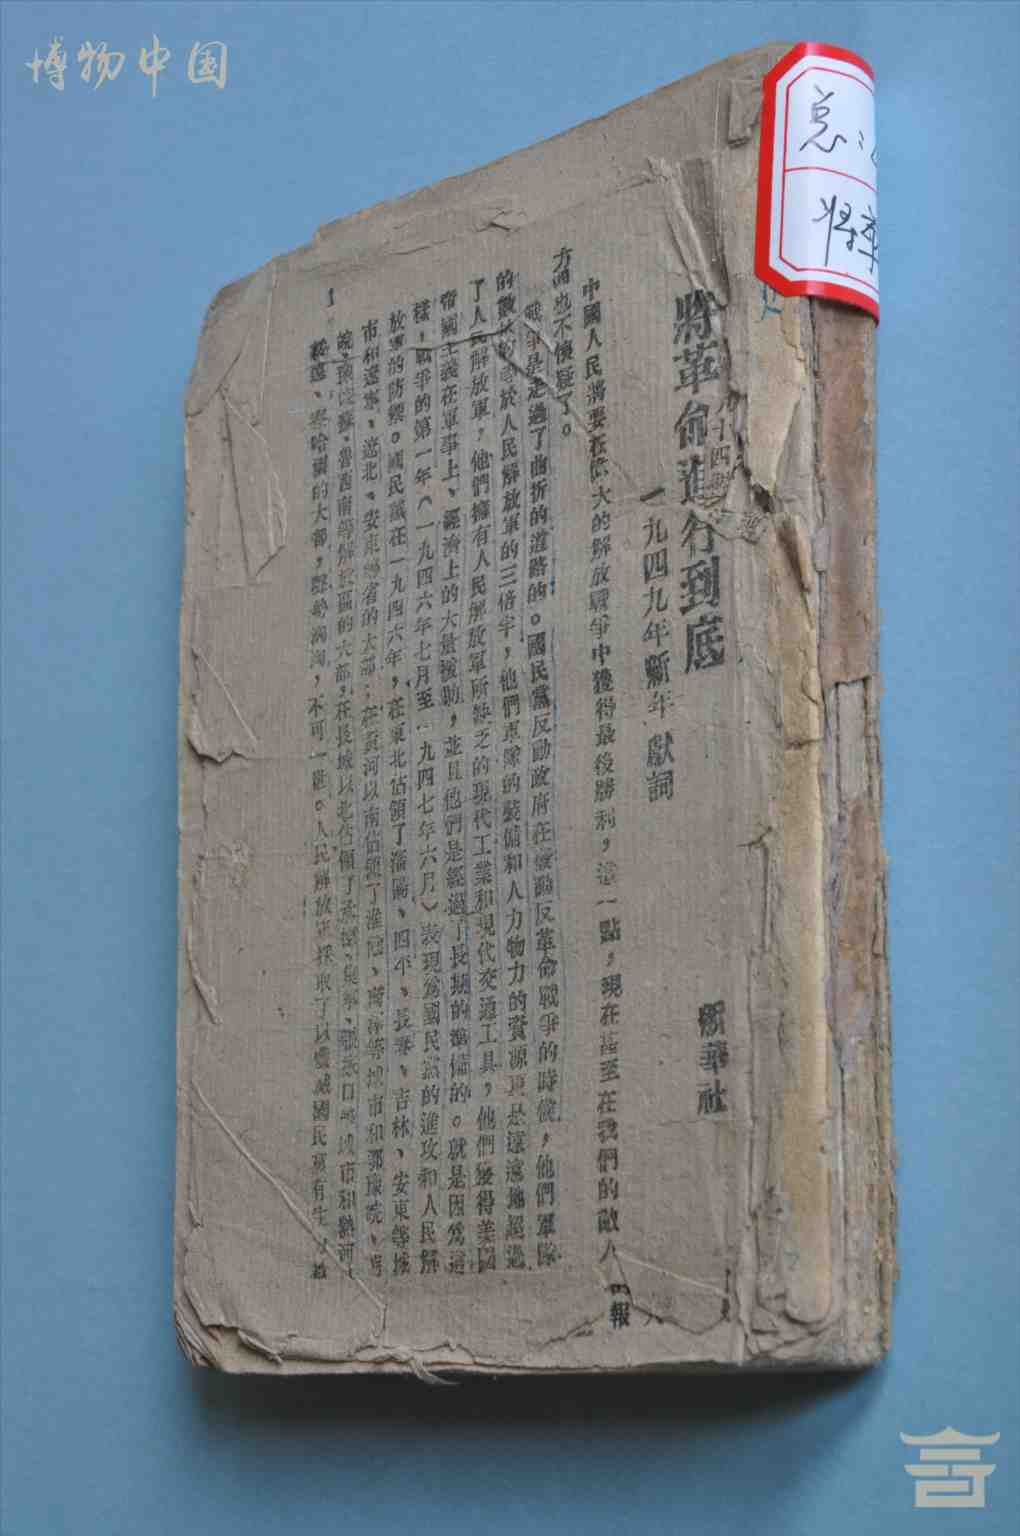 博物中国
总
将革
將革命進行到底
一九四九年新年獻詞
新華社
中國人民將要在偉大的解放戰爭中獲得最後勝利，這一點，現在甚至在我們的敵人
方面也不懷疑了。
戰爭是走過了曲折的道路的。國民黨反動政府在發動反革命戰爭的時候，他們軍隊
的數量約等於人民解放軍的三倍半，他們軍隊的裝備和人力物力的資源更是遠遠地超過
了人民解放軍，他們擁有人民解放軍所缺乏的現代工業和現代交通工具，他們獲得美國
帝國主義在軍事上、經濟上的大量援助，並且他們是經過了長期的準備的。就是因爲這
樣，戰爭的第一年（一九四六年七月至一九四七年六月）表現爲國民黨的進攻和人民解
放軍的防禦。國民黨在一九四六年，在東北佔領了瀋陽、四平、長春、吉林、安東等城
市和遼寧、遼北、安東等省的大部；在黃河以南佔領了淮陰、菏澤等城市和鄂豫皖、蘇
皖、豫皖蘇、魯西南等解放區的大部，在長城以北佔領了承德、集寧、張家口等城市和熱河、
綏遠、察哈爾的大部，聲勢洶洶，不可一世。人民解放軍採取了以殲滅國民黨有生力量
1
報